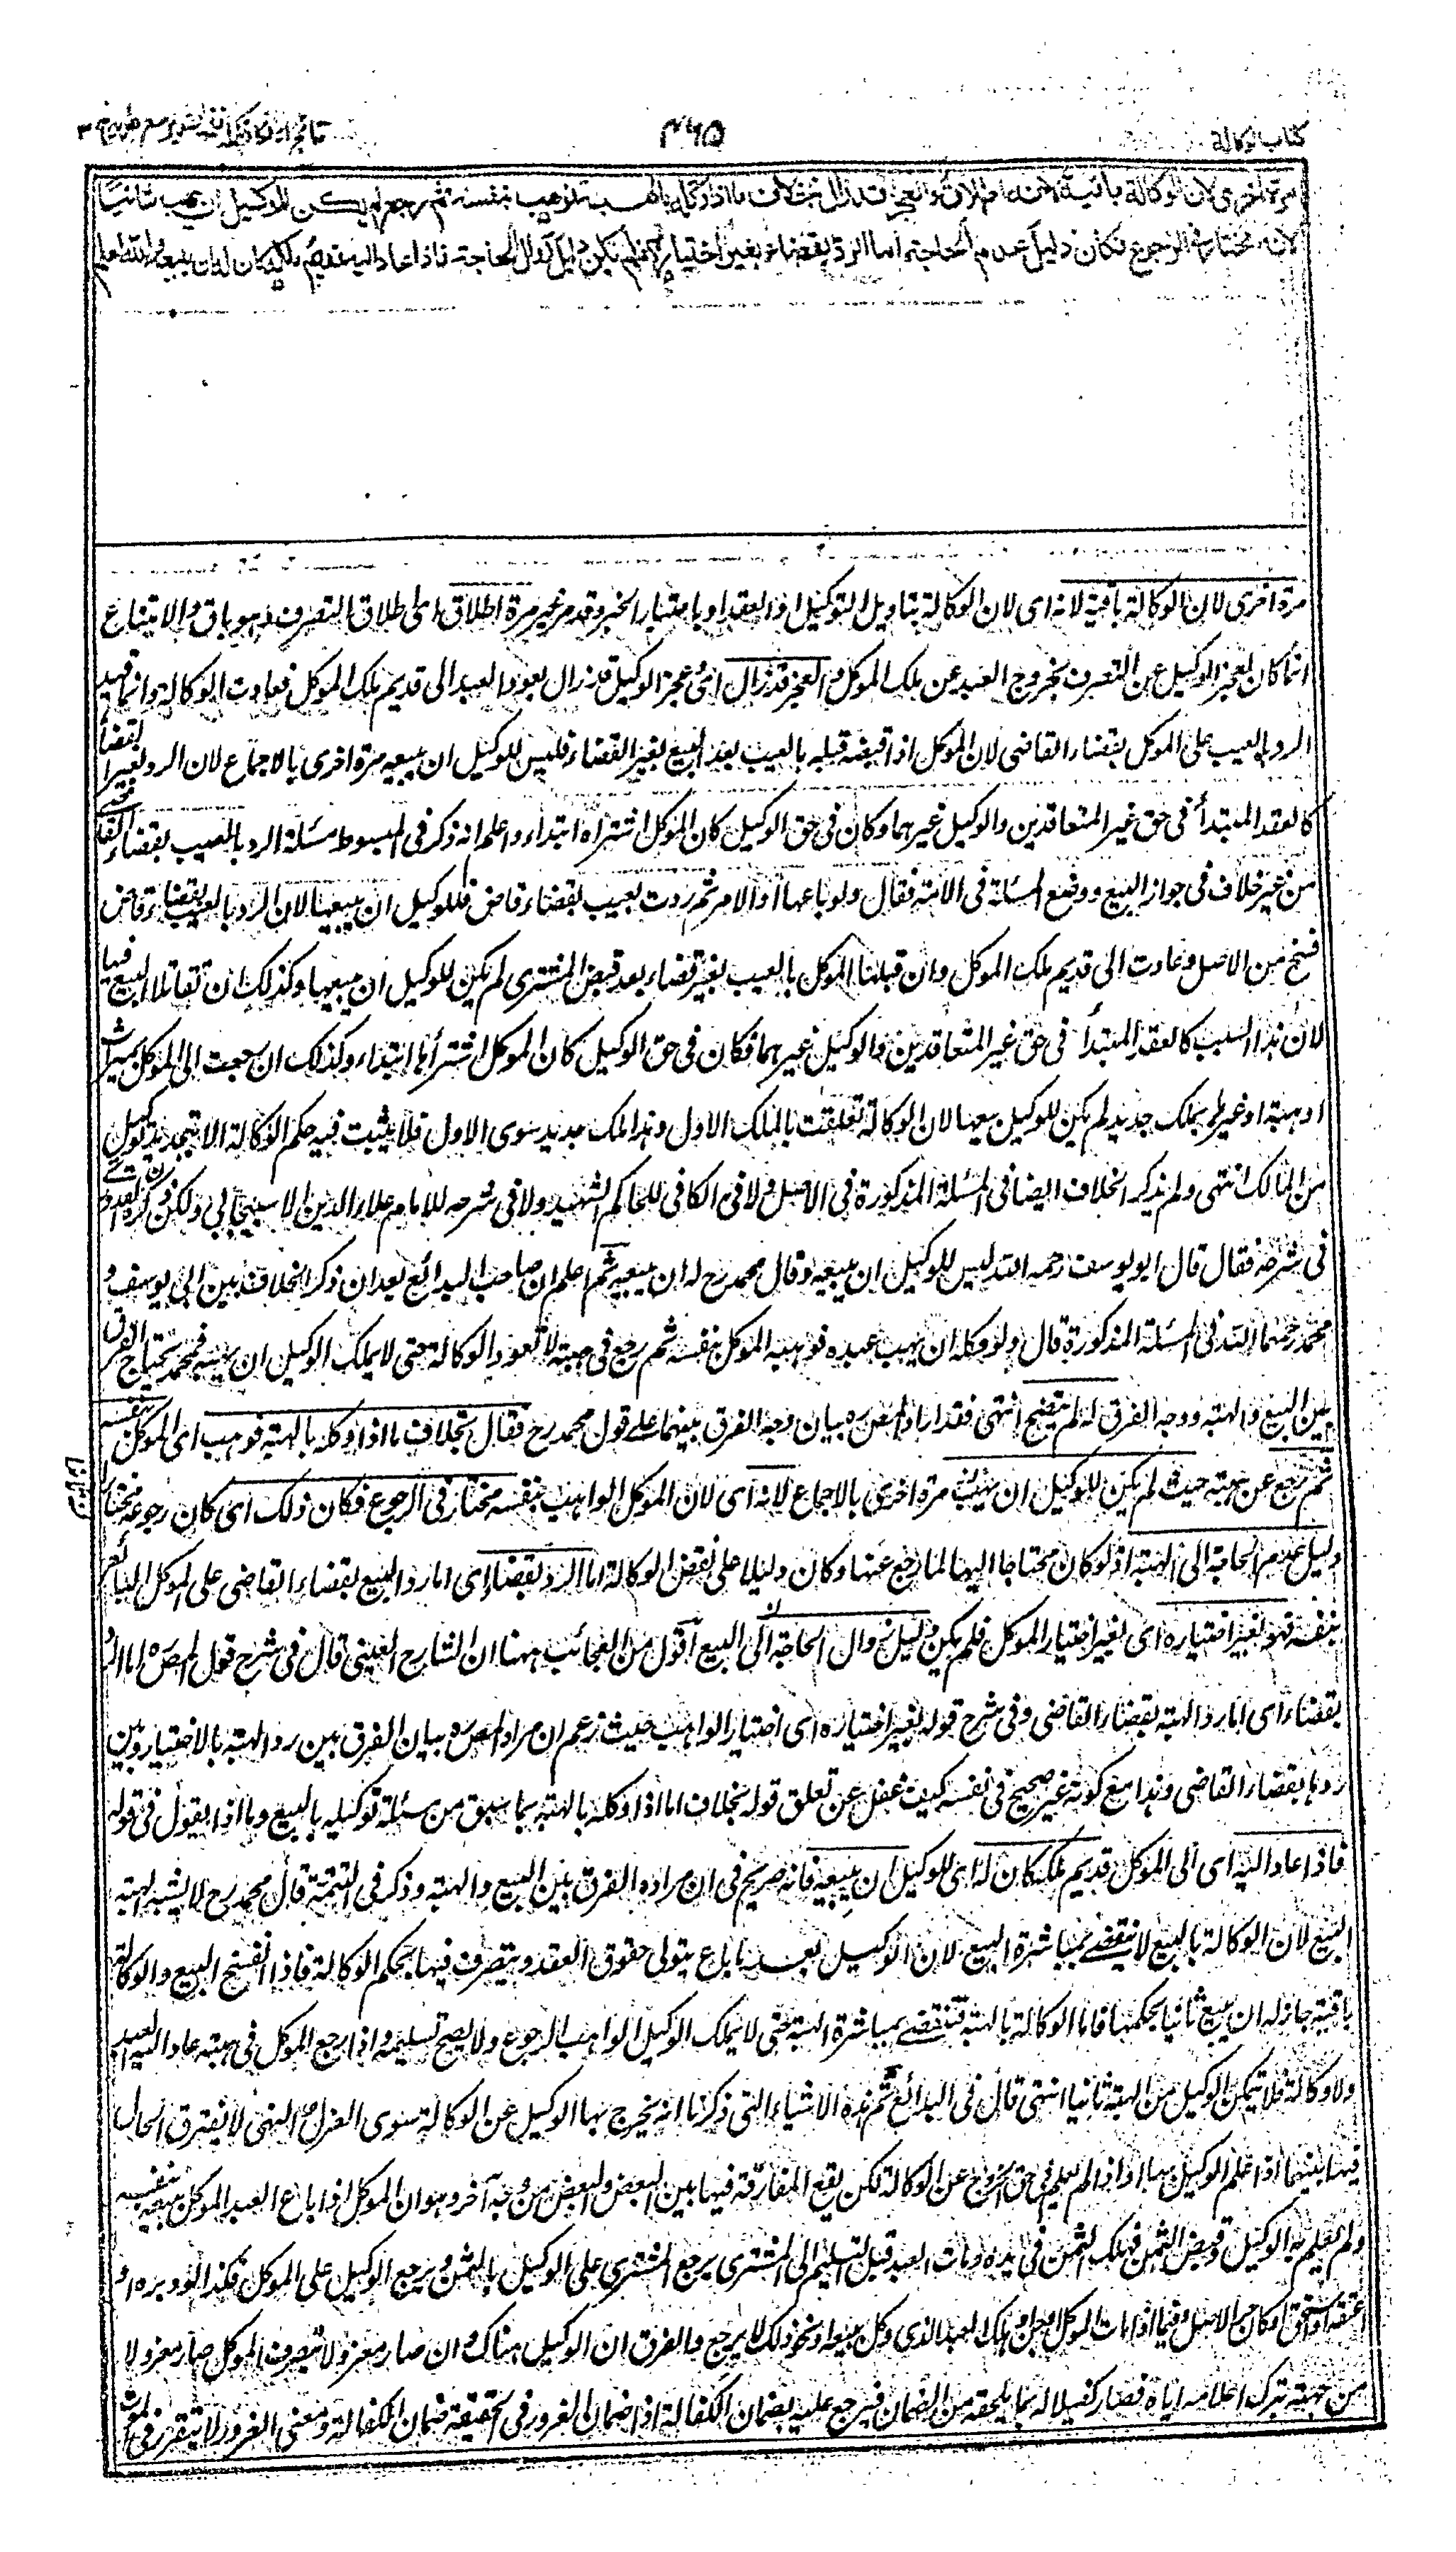 كتاب الوكالة
٤٦٥
نتائج الافكار تكملة فتح القدير مع هداية ج ٣
مرة اخرى لان الوكالة باقية لانه اطلاق والعجز قد زال بخلاف ما اذا وكله بالهبة فوهب بنفسه ثم رجع لم يكن للوكيل ان يهب ثانيا
لانه مختار فى الرجوع فكان ذليل عدم الحاجة اما الرد بقضاء بغير اختياره فلم يكن دليل زوال الحاجة فاذا عاد اليه قديم ملكه كان له ان يبيعه والله اعلم
مرة اخرى لان الوكالة باقية لانه اى لان الوكالة بتاويل التوكيل او العقد او باعتبار الخبر وقد مر غير مرة اطلاق اى اطلاق التصرف وهو باق والامتناع
انما كان لعجز الوكيل عن التصرف بخروج العبد عن ملك الموكل والعجز قد زال اى وعجز الوكيل قد زال بعود العبد الى قديم ملك الموكل فعادت الوكالة وانما قيد
الرد بالعيب على الموكل بقضاء القاضى لان الموكل اذا قبضه قبله بالعيب بعد البيع بغير القضاء فليس للوكيل ان يبيعه مرة اخرى بالاجماع لان الرد بغير القضاء
كالعقد المبتدأ فى حق غير المتعاقدين والوكيل غيرهما وكان فى حق الوكيل كان الموكل اشتراه ابتداء واعلم انه ذكر فى المبسوط مسئلة الرد بالعيب بقضاء القاضى
من غير خلاف فى جواز البيع ووضع المسئلة فى الامة فقال ولو باعها الآمر ثم ردت بعيب بقضاء قاض فللوكيل ان يبيعها لان الرد بالعيب بقضاء قاض
فسخ من الاصل وعادت الى قديم ملك الموكل وان قبلها الموكل بالعيب بغير قضاء بعد قبض المشترى لم يكن للوكيل ان يبيعها وكذلك ان تقايلا البيع فيها
لان هذا السبب كالعقد المبتدأ فى حق غير المتعاقدين والوكيل غيرهما فكان فى حق الوكيل كان الموكل اشتراها ابتداء وكذلك ان رجعت الى الموكل بميراث
او هبة او غيرهما بملك جديد لم يكن للوكيل بيعها لان الوكالة تعلقت بالملك الاول وهذا ملك جديد سوى الاول فلا يثبت فيه حكم الوكالة الا بتجديد توكيل
من المالك انتهى ولم يذكر الخلاف ايضا فى المسئلة المذكورة فى الاصل ولا فى الكافى للحاكم الشهيد ولا فى شرحه للامام علاء الدين الاسبيجابى ولكن ذكره القدورى
فى شرحه فقال قال ابو يوسف رحمه الله ليس للوكيل ان يبيعه وقال محمد رح له ان يبيعه ثم اعلم ان صاحب البدائع بعد ان ذكر الخلاف بين ابى يوسف و
محمد رحمهما الله فى المسئلة المذكورة قال ولو وكله ان يهب عبده فوهبه الموكل بنفسه ثم رجع فى هبته لا تعود الوكالة حتى لا يملك الوكيل ان يهبه فمحمد يحتاج الى الفرق
بين البيع والهبة ووجه الفرق له لم يتضح انتهى فقد اراد المصره بيان وجه الفرق بينهما على قول محمد رح فقال بخلاف ما اذا وكله بالهبة فوهب اى الموكل بنفسه
ثم رجع عن هبته حيث لم يكن للوكيل ان يهب مرة اخرى بالاجماع لانه اى لان الموكل الواهب بنفسه مختار فى الرجوع فكان ذلك اى كان رجوعه مختارا
دليل عدم الحاجة الى الهبة اذ لو كان محتاجا اليها لما رجع عنها وكان دليلا على نقض الوكالة اما الرد بقضاء اى اما رد البيع بقضاء القاضى على الموكل البائع
بنفسه فهو بغير اختياره اى بغير اختيار الموكل فلم يكن دليل زوال الحاجة الى البيع اقول من العجائب ههنا ان الشارح العينى قال فى شرح قول المصره اما الرد
بقضاء اى اما رد الهبة بقضاء القاضى وفى شرح قوله بغير اختياره اى اختيار الواهب حيث زعم ان مراد المصره بيان الفرق بين رد الهبة بالاختيار وبين
ردها بقضاء القاضى وهذا مع كونه غير صحيح فى نفسه كيف غفل عن تعلق قوله بخلاف ما اذا وكله بالهبة بما سبق من مسئلة توكيله بالبيع وماذا يقول فى قوله
فاذا عاد اليه اى الى الموكل قديم ملكه كان له اى للوكيل ان يبيعه فانه صريح فى ان مراده الفرق بين البيع والهبة وذكر فى التتمة قال محمد رح لا يشبه الهبة
البيع لان الوكالة بالبيع لا تنقضى بمباشرة البيع لان الوكيل بعد ما باع يتولى حقوق العقد ويتصرف فيها بحكم الوكالة فاذا انفسخ البيع والوكالة
باقية جاز له ان يبيع ثانيا بحكمها فاما الوكالة بالهبة تنقضى بمباشرة الهبة حتى لا يملك الوكيل الواهب الرجوع ولا يصح تسليمه واذا رجع الموكل فى هبته عاد اليه العبد
ولا وكالة فلا يتمكن الوكيل من الهبة ثانيا انتهى قال فى البدائع ثم هذه الاشياء التى ذكرنا انه يخرج بها الوكيل عن الوكالة سوى العزل والنهى لا يفترق الحال
فيها بينهما اذا علم الوكيل بها او اذا لم يعلم فى حق الخروج عن الوكالة لكن يقع المفارقة فيها بين البعض والبعض من وجه آخر وهو ان الموكل اذا باع العبد الموكل ببيعه بنفسه
ولم يعلم به الوكيل وقبض الثمن فهلك الثمن فى يده ومات العبد قبل التسليم الى المشترى يرجع المشترى على الوكيل بالثمن ويرجع الوكيل على الموكل فكذا لو دبره او
اعتقه او استحق او كان حر الاصل وفيما اذا مات الموكل او جن او هلك العبد الذى وكل ببيعه او نحو ذلك لا يرجع والفرق ان الوكيل هناك وان صار معزولا بتصرف الموكل صار مغرورا
من جهته بترك اعلامه اياه فصار كفيلا له بما يلحقه من الضمان فيرجع عليه بضمان الكفالة اذ ضمان الغرور فى الحقيقة ضمان الكفالة ومعنى الغرور لا يتقرر فى الموت